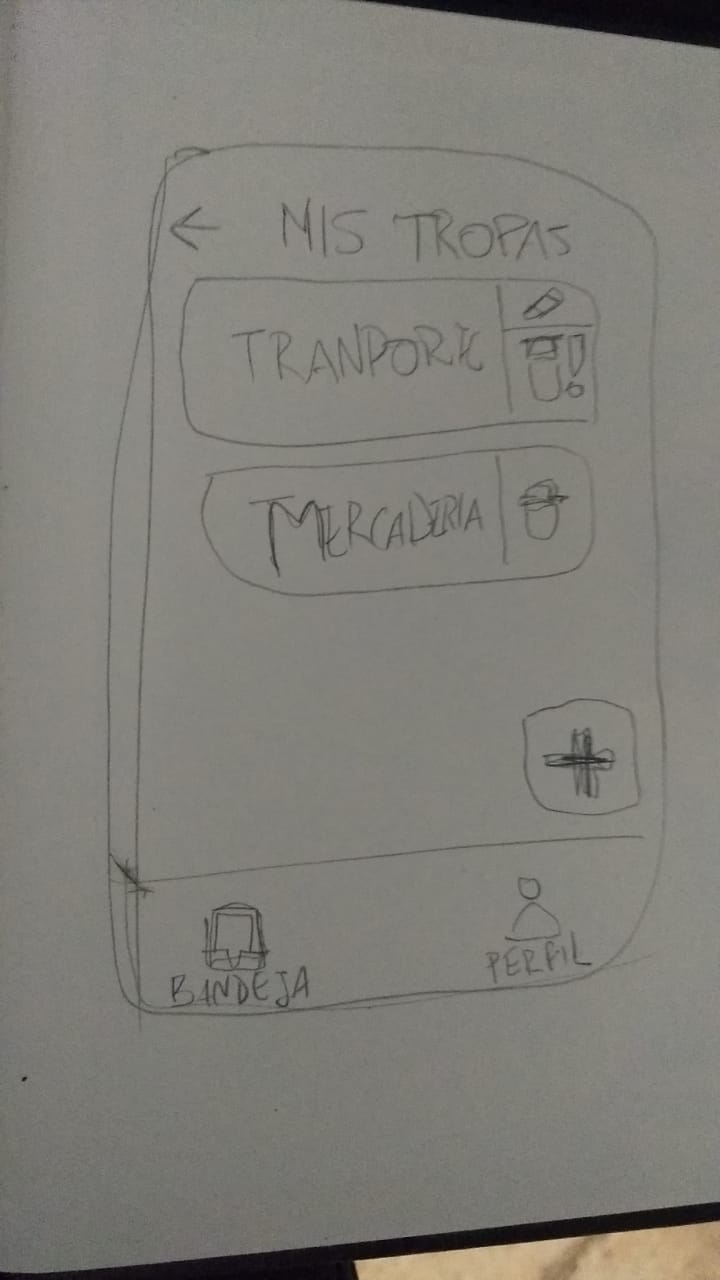 ← MIS TROPAS
TRANPORTE
MERCADERIA
+
BANDEJA
PERFIL